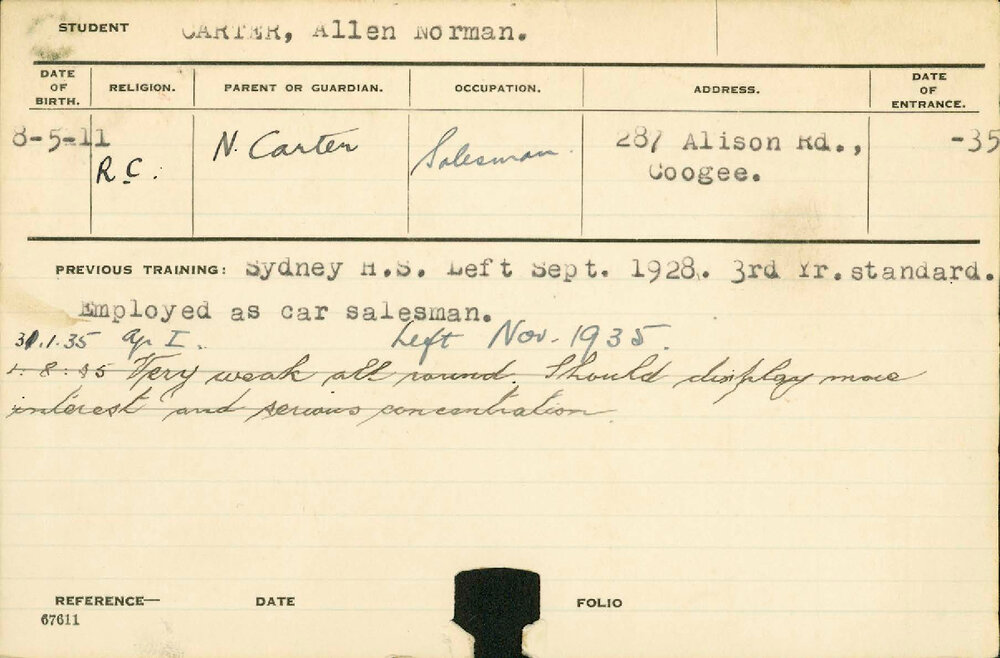 STUDENT CARTER, Allen Norman.
DATE OF BIRTH. RELIGION. PARENT OR GUARDIAN. OCCUPATION. ADDRESS. DATE OF ENTRANCE.
8-5-11 R.C. N. Carter Salesman. 287 Alison Rd., -35
Coogee.
PREVIOUS TRAINING: Sydney H.S. Left Sept. 1928. 3rd Yr. standard.
Employed as car salesman.
31.1.35 I. Left Nov. 1935.
8.35 Very weak all round. Should display more
interest and serious concentration
REFERENCE— DATE FOLIO
67611